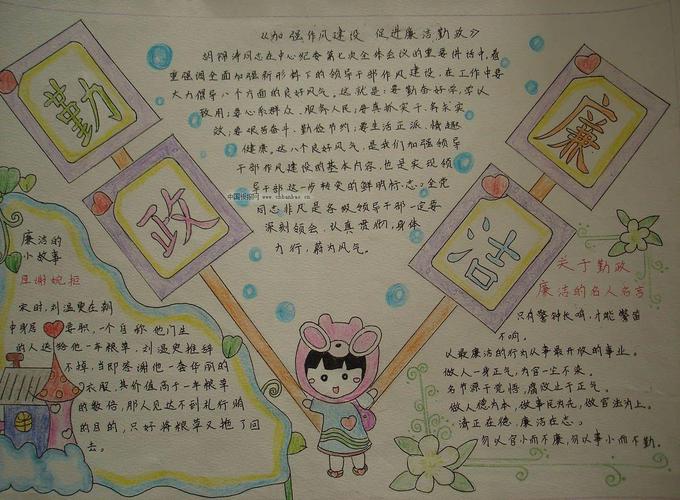 《加强作风建设 促进廉洁勤政》
胡锦涛同志在中心纪委第七次全体会议的重要讲话中,着
重强调全面加强新形群下的领导干部作风建设,在工作中要
大力倡导八个方面的良好风气。这就是:要勤奋好学、学以
致用;要心系群众、服务人民;要真抓实干、务求实
效;要艰苦奋斗、勤俭节约;要生活正派、情趣
健康。这八个良好风气,是我们加强领导
干部作风建设的基本内容,也是实现领
导干部这一步转变的鲜明标志。全党
同志非凡是各级领导干部一定要
深刻领会、认真贯彻,身体
力行,蔚为风气。
勤
政
廉
洁
中国板报网
www.chbanbao.cn
廉洁的
小故事
且谢婉拒
宋时,刘温叟在朝
中身居要职,一个自称他门生
的人送给他一车粮草,刘温叟推辞
不掉,当即答谢他一套华丽的
衣服,其价值高于一车粮草
的数倍,那人见达不到礼行贿
的目的,只好将粮草又拖了回
去。
关于勤政
廉洁的名人名言
只有警钟长鸣,才能警笛
不响。
以最廉洁的行为从事最开放的事业。
做人一身正气,为官一尘不染。
名节源于党悟,腐败止于正气。
做人德为本,做事民为先,做官法为上。
清正在德,廉洁在志。
勿以官小而不廉,勿以事小而不勤。